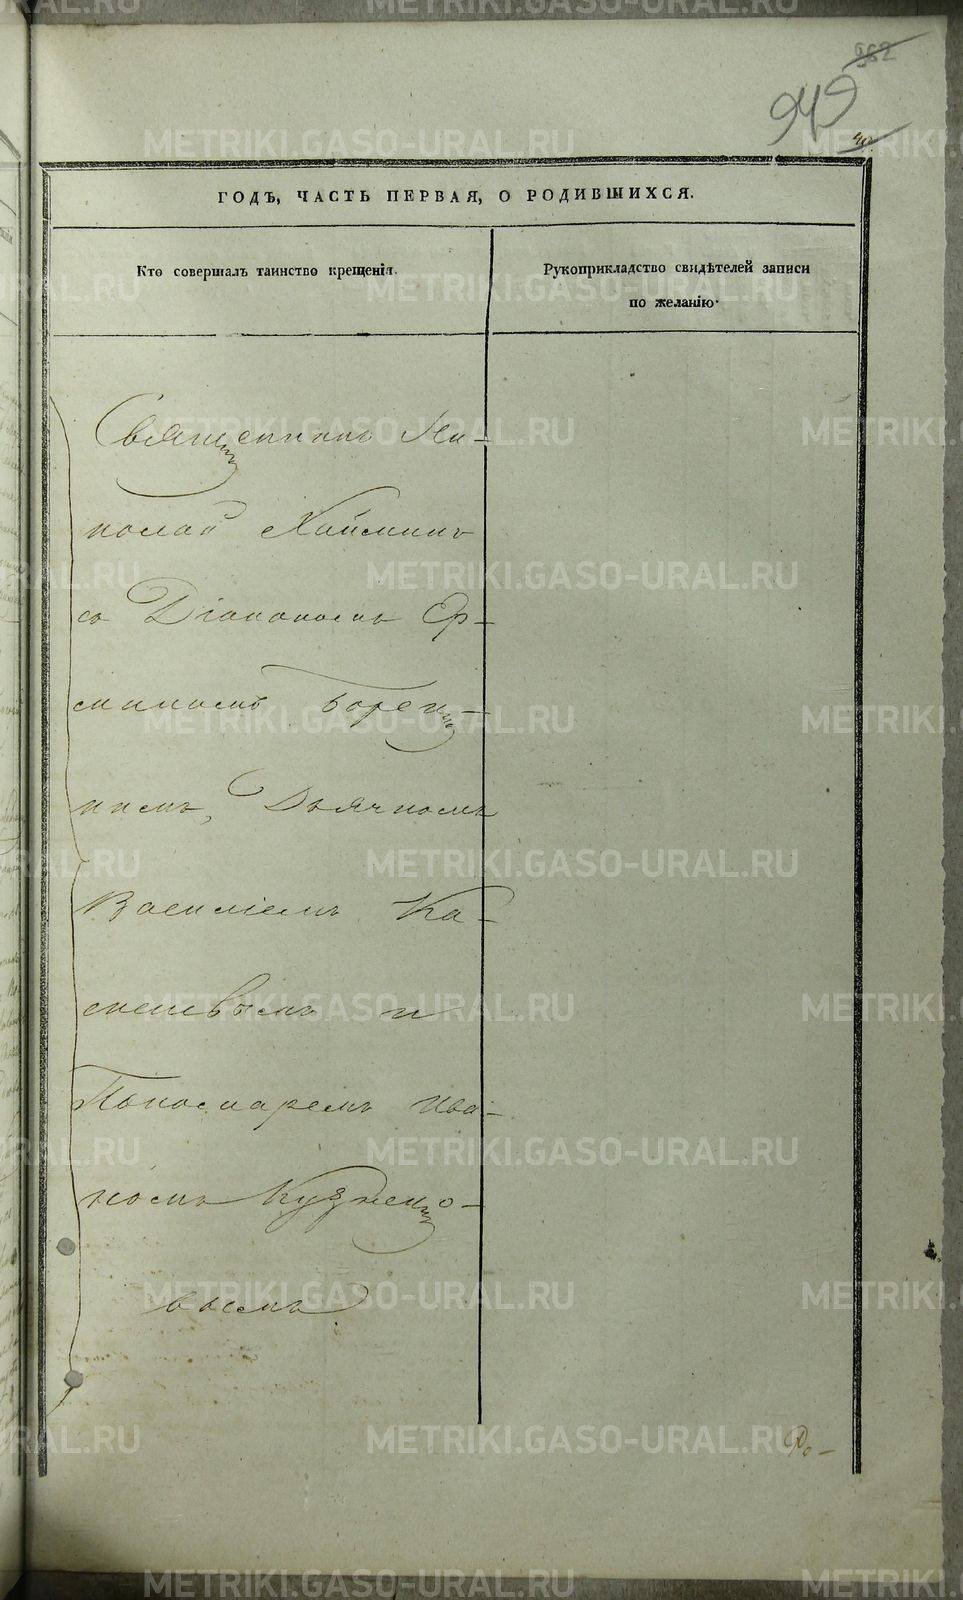 952
949
40.
ГОДЪ, ЧАСТЬ ПЕРВАЯ, О РОДИВШИХСЯ.
Кто совершалъ таинство крещенія.
Рукоприкладство свидѣтелей записи
по желанію.
Священникъ Ни-
колай Хаймикъ
съ Діакономъ Ер-
миномъ Борец-
кимъ, Дьячкомъ
Василіемъ Ка-
сшевымъ и
Пономаремъ Ива-
номъ Кузнецо-
вымъ
Ро-
METRIKI.GASO-URAL.RU